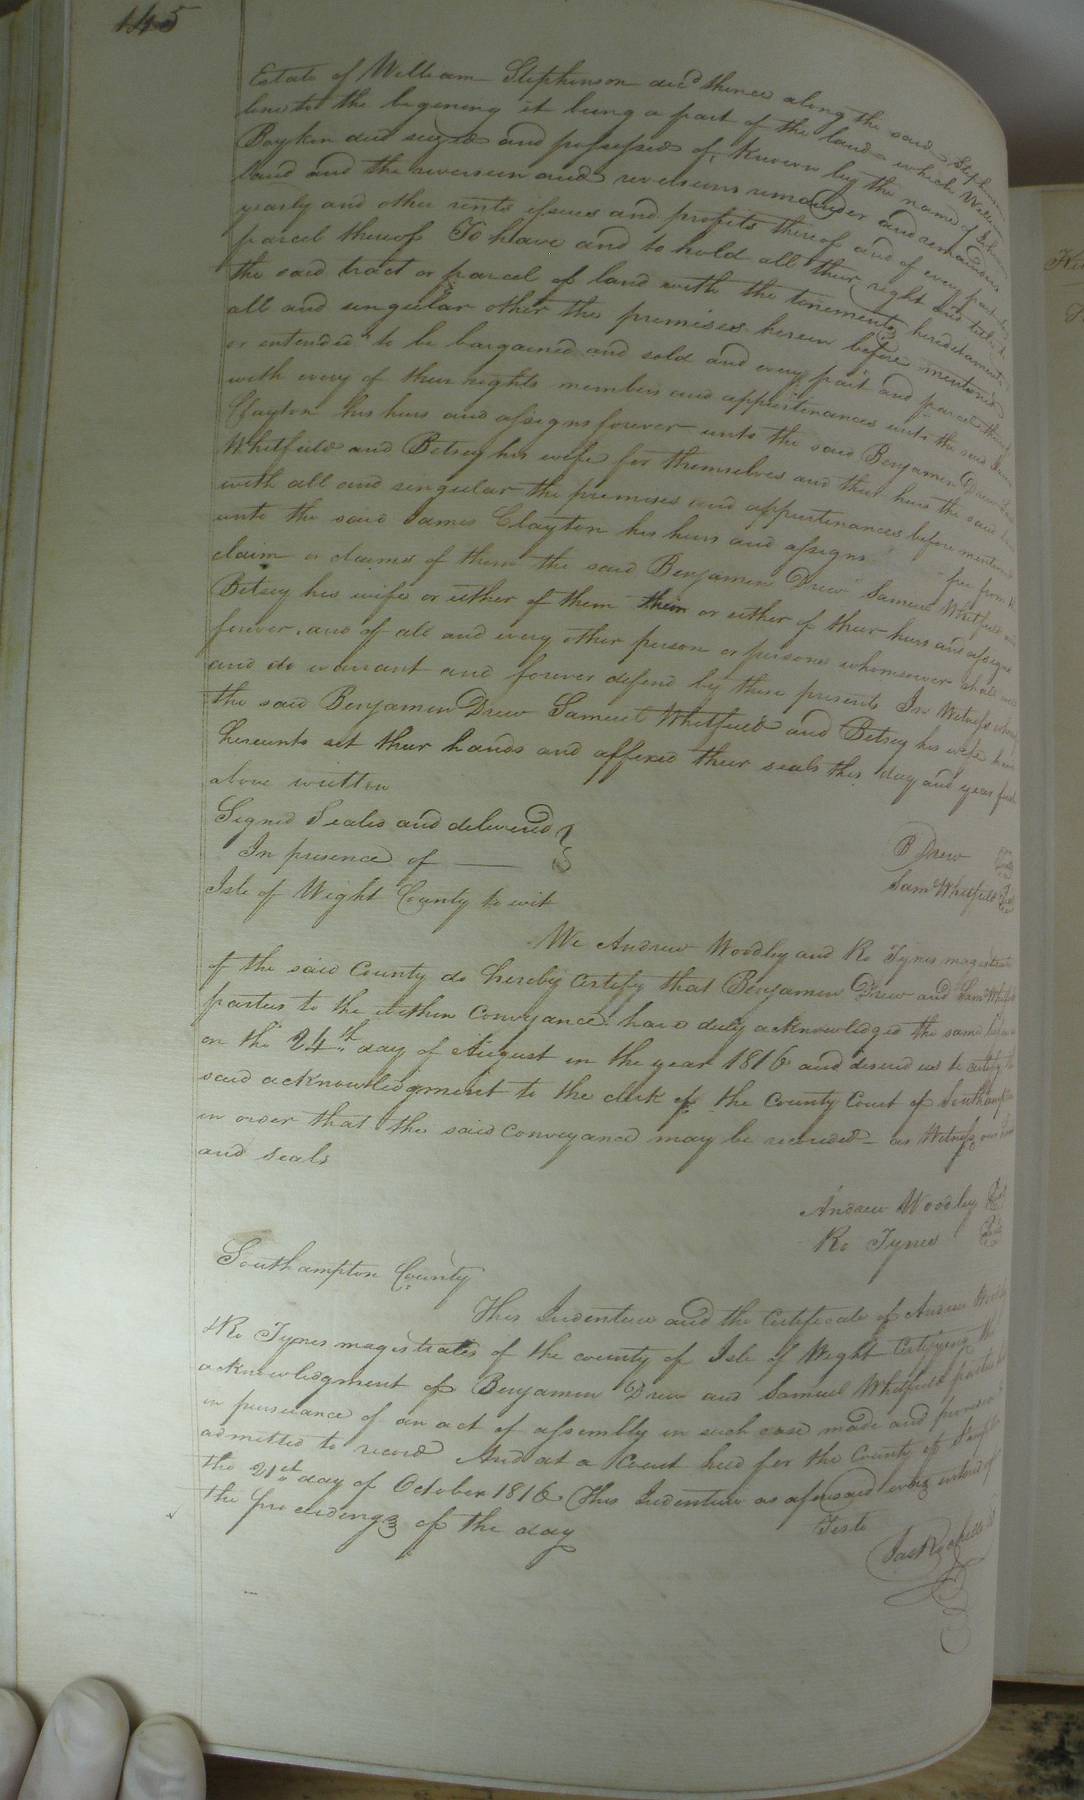 145
Estate of William Stephenson decd thence along the said Stephenson
line to the begining it being a part of the land which William
Boykin died seized and possessed of, known by the name of
land and the reversion and reversions remainder and remainders
yearly and other rents issues and profits thereof and of every part and
parcel thereof To have and to hold all their right and title
the said tract or parcel of land with the tenements hereditaments
all and singular other the premises herein before mentioned
or entended to be bargained and sold and every part and parcel thereof
with every of their rights members and appurtenances unto the said James
Clayton his heirs and assigns forever and the said Benjamin Drew Saml
Whitfield and Betsey his wife for themselves and their heirs the said land
with all and singular the premises and appurtenances before mentioned
unto the said James Clayton his heirs and assigns free from the
claim or claims of them the said Benjamin Drew Samuel Whitfield and
Betsey his wife or either of them their or either of their heirs and assigns
forever, and of all and every other person or persons whomsoever shall will
and do warrant and forever defend by these presents In Witness whereof
the said Benjamin Drew Samuel Whitfield and Betsey his wife have
hereunto set their hands and affixed their seals this day and year first
above written
Signed Sealed and delivered
In presence of
B Drew
Sam Whitfield
Isle of Wight County to wit
We Andrew Woodley and Ro Tynes magistrates
of the said County do hereby Certify that Benjamin Drew and Saml Whitfield
parties to the within Conveyance have duly acknowledged the same before us
on the 24th day of August in the year 1816 and desired us to certify the
said acknowledgment to the clerk of the County Court of Southampton
in order that the said Conveyance may be recorded - as Witness our hands
and seals
Andrew Woodley Seal
Ro Tynes Seal
Southampton County
This Indenture and the Certificate of Andrew Woodley
& Ro Tynes magistrates of the county of Isle of Wight Certifying the
acknowledgment of Benjamin Drew and Samuel Whitfield parties
in persuance of an act of assembly in such case made and provided
admitted to record And at a Court held for the County of
the 21st day of October 1816 This Indenture as aforesaid was entered of
the proceedings of the day
Teste